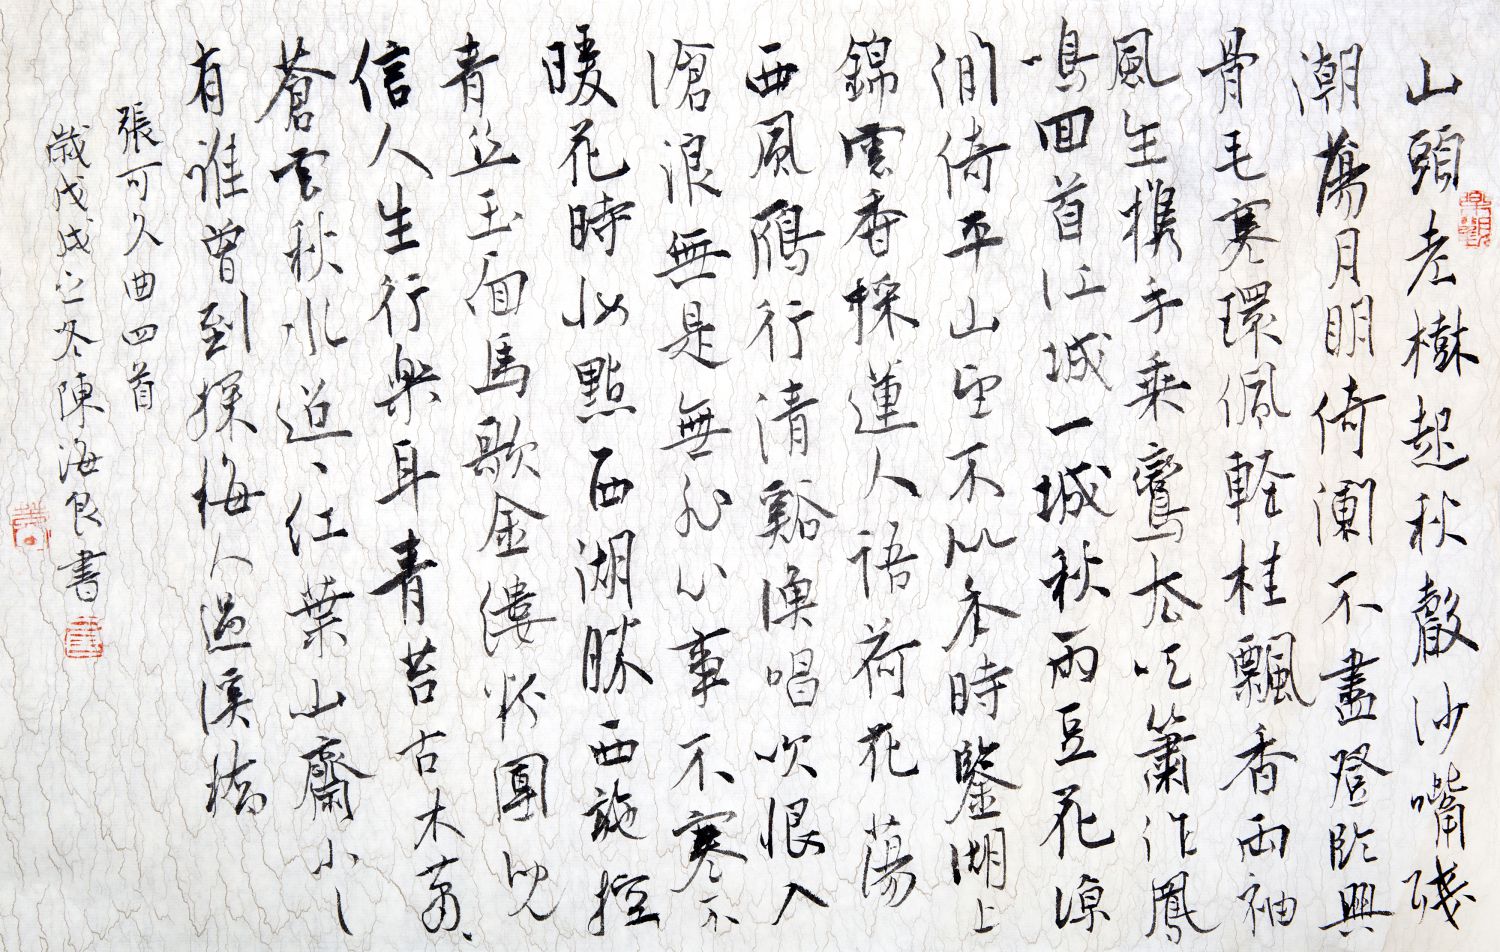 山頭老樹起秋聲沙嘴殘
潮蕩月明倚闌不盡登臨興
骨毛寒環佩輕桂飄香兩袖
風生攜手乘鸞去吹簫作鳳
鳴回首江城一城秋雨豆花涼
閒倚平山望不似年時鑒湖上
錦雲香採蓮人語荷花蕩
西風雁行清谿漁唱吹恨入
滄浪無是無非心事不寒不
暖花時妝點西湖勝西施控
青絲玉面馬歌金縷粉團兒
信人生行樂耳青苔古木蕭、
蒼雲秋水迢、紅葉山齋小〻
有誰曾到探梅人過溪橋
張可久曲四首
歲戊戌之冬陳海良書